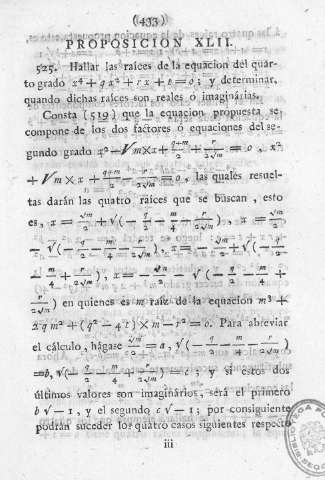 (433)
PROPOSICION XLII.
525. Hallar las raíces de la equacion del quar-
to grado x⁴ + qx² + rx + t = 0; y determinar,
quando dichas raíces son reales ó imaginárias.
Consta (519) que la equacion propuesta se
compone de los dos factores ó equaciones del se-
gundo grado x² − √m × x + (q+m)/2 + r/(2√m) = 0, x²
+ √m × x + (q+m)/2 − r/(2√m) = 0, las quales resuel-
tas darán las quatro raíces que se buscan, esto
es, x = √m/2 + √(− q/2 − m/4 − r/(2√m)), x = √m/2
− √(− q/2 − m/4 − r/(2√m)), x = − √m/2 + √(− q/2
− m/4 + r/(2√m)), x = − √m/2 √(− q/2 − m/4 +
r/(2√m)) en quienes es m raíz de la equacion m³ +
2qm² + (q² − 4t) × m − r² = 0. Para abreviar
el cálculo, hágase √m/2 = a, √(− − m/4 − r/(2√m))
= b, √(− q/2 − m/4 + r/(2√m)) = c; y si estos dos
últimos valores son imaginários, será el primero
b√−1, y el segundo c√−1; por consiguiente
podrán suceder los quatro casos siguientes respecto
iii